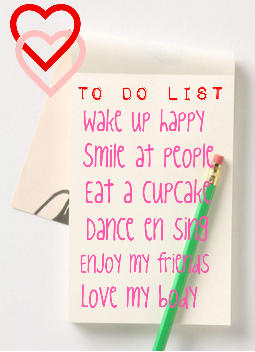 TO DO LIST
Wake up happy
Smile at people
Eat a cupcake
Dance en sing
Enjoy my friends
Love my body